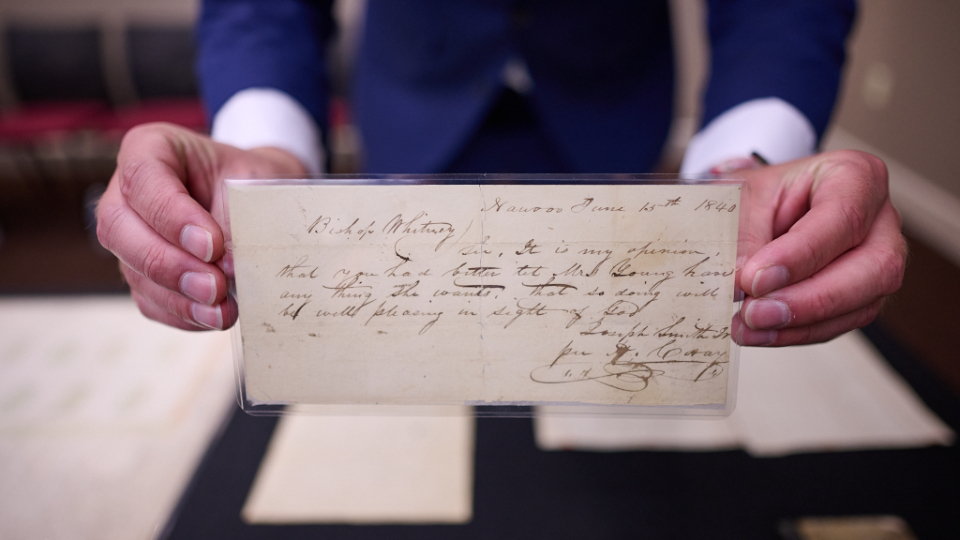 Nauvoo June 15th 1840
Bishop Whitney
Sir, It is my opinion,
that you had better let Mrs Young have
any thing she wants, that so doing will
be well pleasing in sight of God
Joseph Smith Jr
per